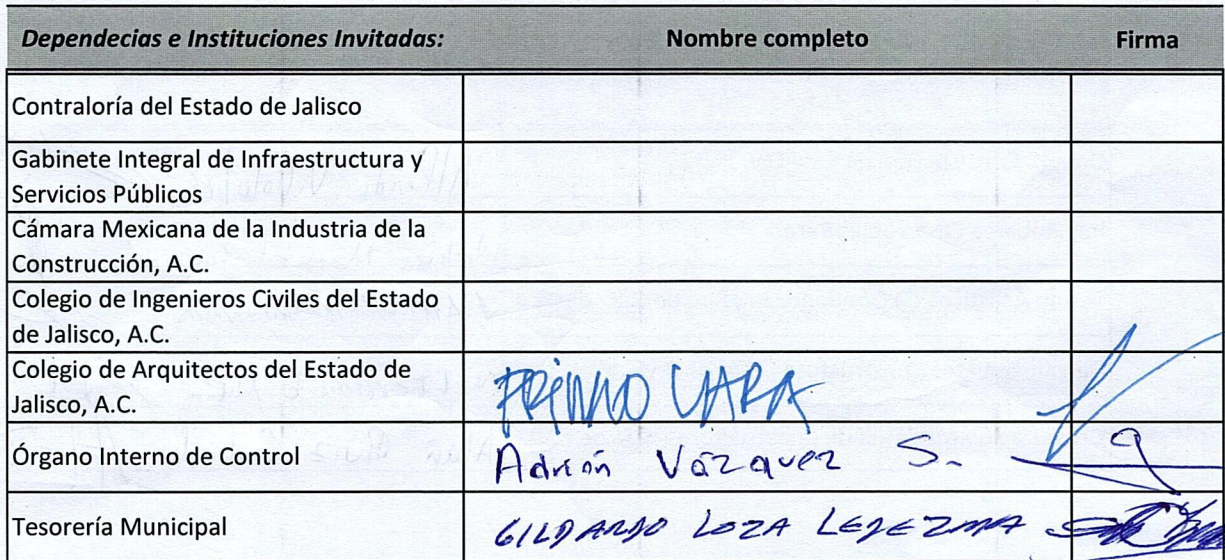 Dependecias e Instituciones Invitadas: Nombre completo Firma
Contraloría del Estado de Jalisco
Gabinete Integral de Infraestructura y
Servicios Públicos
Cámara Mexicana de la Industria de la
Construcción, A.C.
Colegio de Ingenieros Civiles del Estado
de Jalisco, A.C.
Colegio de Arquitectos del Estado de
Jalisco, A.C.
Órgano Interno de Control Adrián Vázquez S.
Tesorería Municipal GILDARDO LOZA LEDEZMA